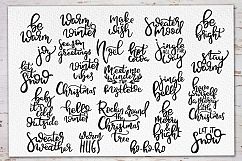 be
warm
warm
winter
make
a
wish
Sweater
mood
be
bright
joy
Season
greetings
Noel
hot
cocoa
let it
Snow
winter
vibes
Meet me
under the
mistletoe
jingle
bells
stay
warm
Christmas
baby
it's cold
outside
hello
winter
Rockin'
around the
Christmas
tree
single
bells
be
merry
bright
have yourself
a merry
little
Christmas
Sweater
weather
warm
HUGS
ho-ho-ho
LET IT
SNOW